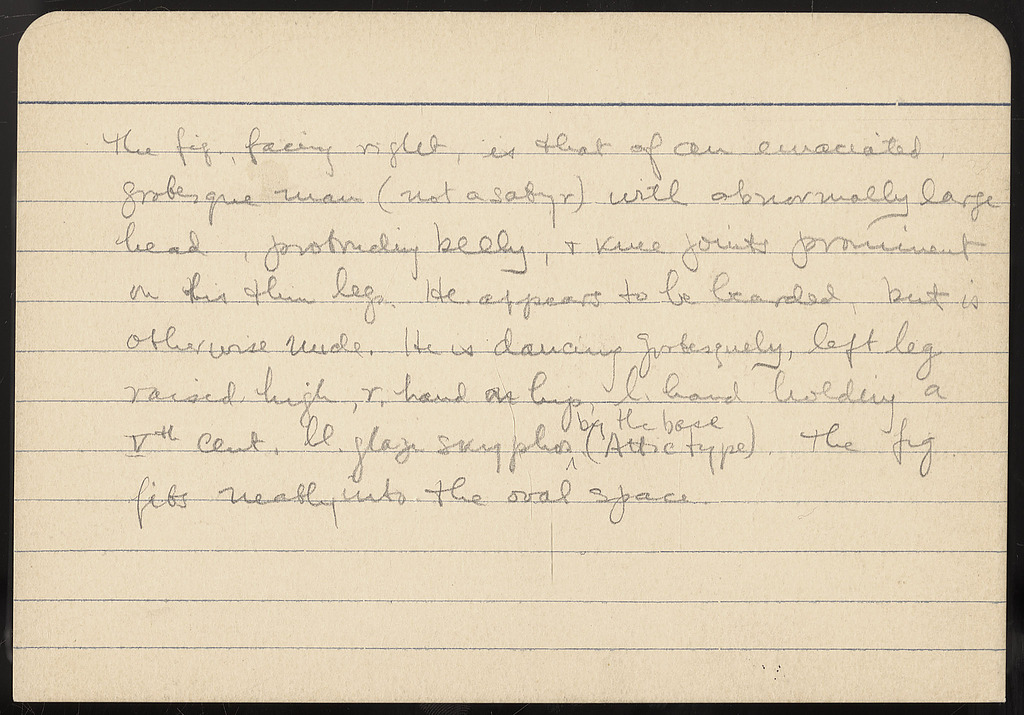 The fig, facing right, is that of an emaciated,
grotesque man (not a satyr) with abnormally large
head, protruding belly, + knee joints prominent
on his thin legs. He appears to be bearded, but is
otherwise nude. He is dancing grotesquely, left leg
raised high, r. hand on hip, l. hand holding a
by the base
Vth cent. bl. glaze skyphos (Attic type). The fig
fits neatly into the oval space.